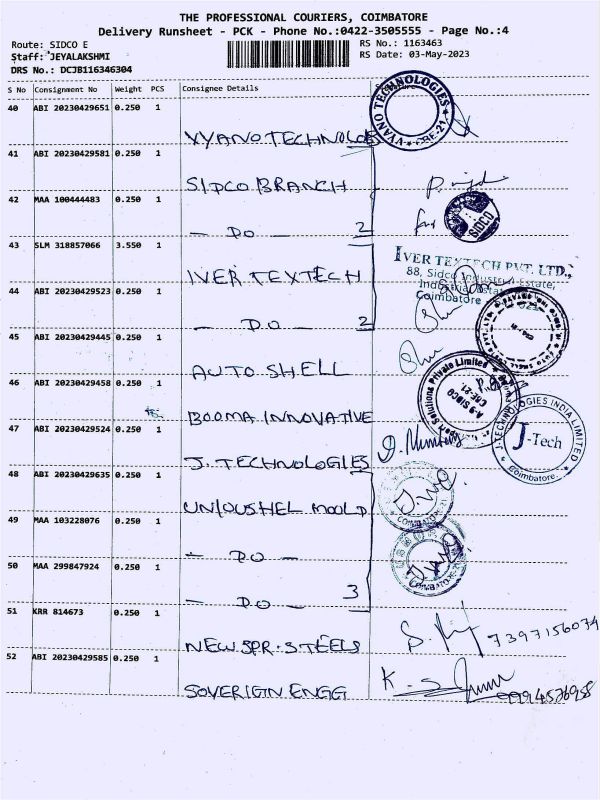 THE PROFESSIONAL COURIERS, COIMBATORE
Delivery Runsheet - PCK - Phone No.:0422-3505555 - Page No.:4
Route: SIDCO E
RS No.: 1163463
Staff: JEYALAKSHMI
RS Date: 03-May-2023
DRS No.: DCJB116346304
S No Consignment No Weight PCS Consignee Details
40 ABI 20230429651 0.250 1
VYANO TECHNOLOGIES
VYANO TECHNOLOGIES CBE-21
41 ABI 20230429581 0.250 1
SIDCO BRANCH
42 MAA 100444483 0.250 1
— DO — 2
for SIDCO
43 SLM 318857066 3.550 1
IVER TEXTECH
IVER TEXTECH PVT. LTD.,
88, Sidco Industrial Estate,
Coimbatore
44 ABI 20230429523 0.250 1
— DO — 2
45 ABI 20230429445 0.250 1
AUTO SHELL
46 ABI 20230429458 0.250 1
BOOMA INNOVATIVE
Solutions Private Limited
A-9 SIDCO
CBE-21.
47 ABI 20230429524 0.250 1
J. TECHNOLOGIES
J-TECHNOLOGIES INDIA LIMITED
J-Tech
Coimbatore.
48 ABI 20230429635 0.250 1
UNIOUSHEL MOOLD
COIMBATORE
49 MAA 103228076 0.250 1
— DO —
50 MAA 299847924 0.250 1
— DO — 3
COIMBATORE
51 KRR 814673 0.250 1
NEW.SPR.STEELS
7397156074
52 ABI 20230429585 0.250 1
SOVERIGN ENGG
K. S
9994576958